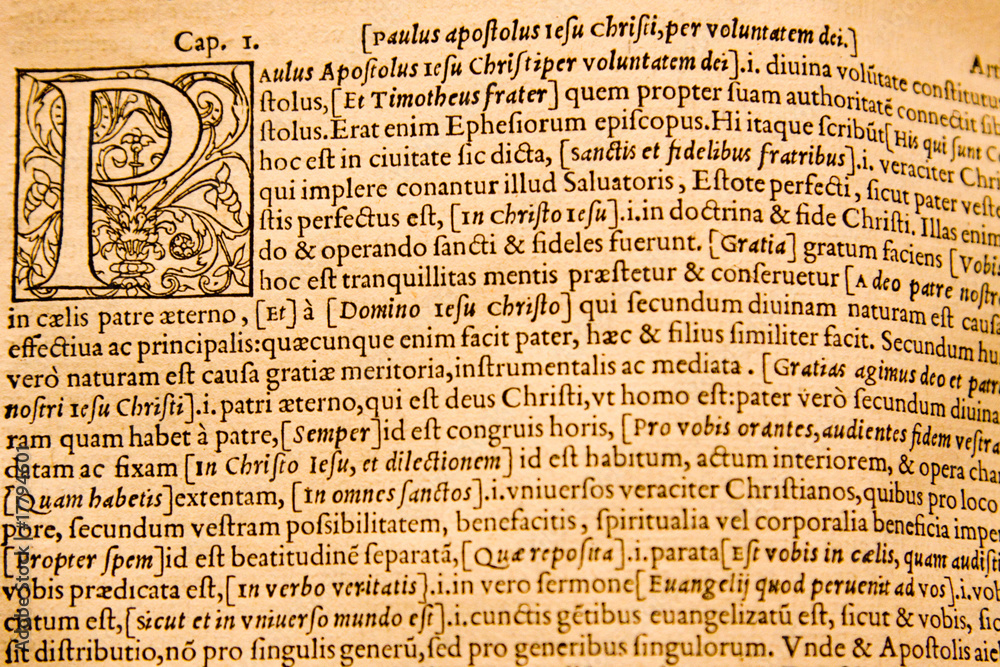 Cap. 1.
[Paulus apoſtolus Ieſu Chriſti,per voluntatem dei.]
PAulus Apoſtolus Ieſu Chriſti per voluntatem dei].i. diuina volūtate conſtitutu
ſtolus,[Et Timotheus frater] quem propter ſuam authoritatē connectit ſib
ſtolus.Erat enim Epheſiorum epiſcopus.Hi itaque ſcribūt[His qui ſunt C
hoc eſt in ciuitate ſic dicta, [sanctis et fidelibus fratribus].i. veraciter Chri
qui implere conantur illud Saluatoris, Eſtote perfecti, ſicut pater veſt
ſtis perfectus eſt, [in chriſto Ieſu].i.in doctrina & fide Chriſti. Illas enim
do & operando ſancti & fideles fuerunt. [Gratia] gratum faciens [Vobis
hoc eſt tranquillitas mentis præſtetur & conſeruetur [A deo patre noſtr
in cælis patre æterno, [Et] à [Domino Ieſu Chriſto] qui ſecundum diuinam naturam eſt cauſa
effectiua ac principalis:quæcunque enim facit pater, hæc & filius ſimiliter facit. Secundum hu
verò naturam eſt cauſa gratiæ meritoria,inſtrumentalis ac mediata. [Gratias agimus deo et patri
noſtri Ieſu Chriſti].i.patri æterno,qui eſt deus Chriſti,vt homo eſt:pater verò ſecundum diuina
ram quam habet à patre,[Semper]id eſt congruis horis, [Pro vobis orantes,audientes fidem veſtra
datam ac fixam [in Chriſto Ieſu, et dilectionem] id eſt habitum, actum interiorem, & opera cha
[Quam habetis]extentam, [in omnes ſanctos].i.vniuerſos veraciter Chriſtianos,quibus pro loco
pore, ſecundum veſtram poſsibilitatem, benefacitis, ſpiritualia vel corporalia beneficia impe
[Propter ſpem]id eſt beatitudinē ſeparatā,[Quæ repoſita].i.parata[Eſt vobis in cælis, quam audiſti
vobis prædicata eſt,[in verbo veritatis].i.in vero ſermone[Euangelij quod peruenit ad vos].i.vob
datum eſt,[sicut et in vniuerſo mundo eſt].i.cunctis gētibus euangelizatū eſt, ſicut & vobis, ſic
ſit diſtributio,nō pro ſingulis generū,ſed pro generibus ſingulorum. Vnde & Apoſtolis aie
Adobe Stock